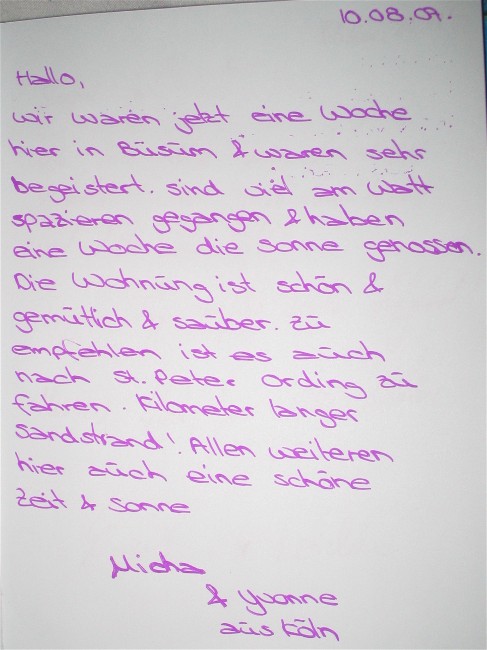 10.08.09.
Hallo,
wir waren jetzt eine Woche
hier in Büsum & waren sehr
begeistert. sind viel am Watt
spazieren gegangen & haben
eine Woche die Sonne genossen.
Die Wohnung ist schön &
gemütlich & sauber. zu
empfehlen ist es auch
nach St. Peter Ording zu
fahren. Kilometer langer
Sandstrand! Allen weiteren
hier auch eine schöne
Zeit & Sonne
Micha
& Yvonne
aus Köln